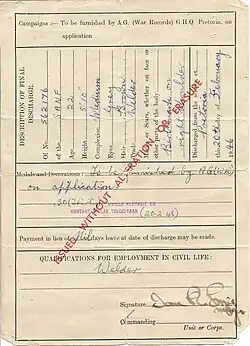 Campaigns :- To be furnished by A.G. (War Records) G.H.Q Pretoria, on
application
DESCRIPTION OF FINAL
DISCHARGE
Of No.
Of the S.A.N.F.
Age
Height
Complexion Medium
Eyes Grey
Hair Brown
Trade Welder
Marks or Scars, whether on face or
other parts of the body
Birthmark on
right shoulder
Discharged from service at
Pretoria
this 20th day of February
1946
ISSUED WITHOUT ALTERATION OR ERASURE
Medals and Decorations: To be furnished by A.G. (W.R.)
on application
(20-2-46)
Payment in lieu of Nil days leave at date of discharge may be made.
QUALIFICATIONS FOR EMPLOYMENT IN CIVIL LIFE:
Welder
Signature
Commanding
Unit or Corps.